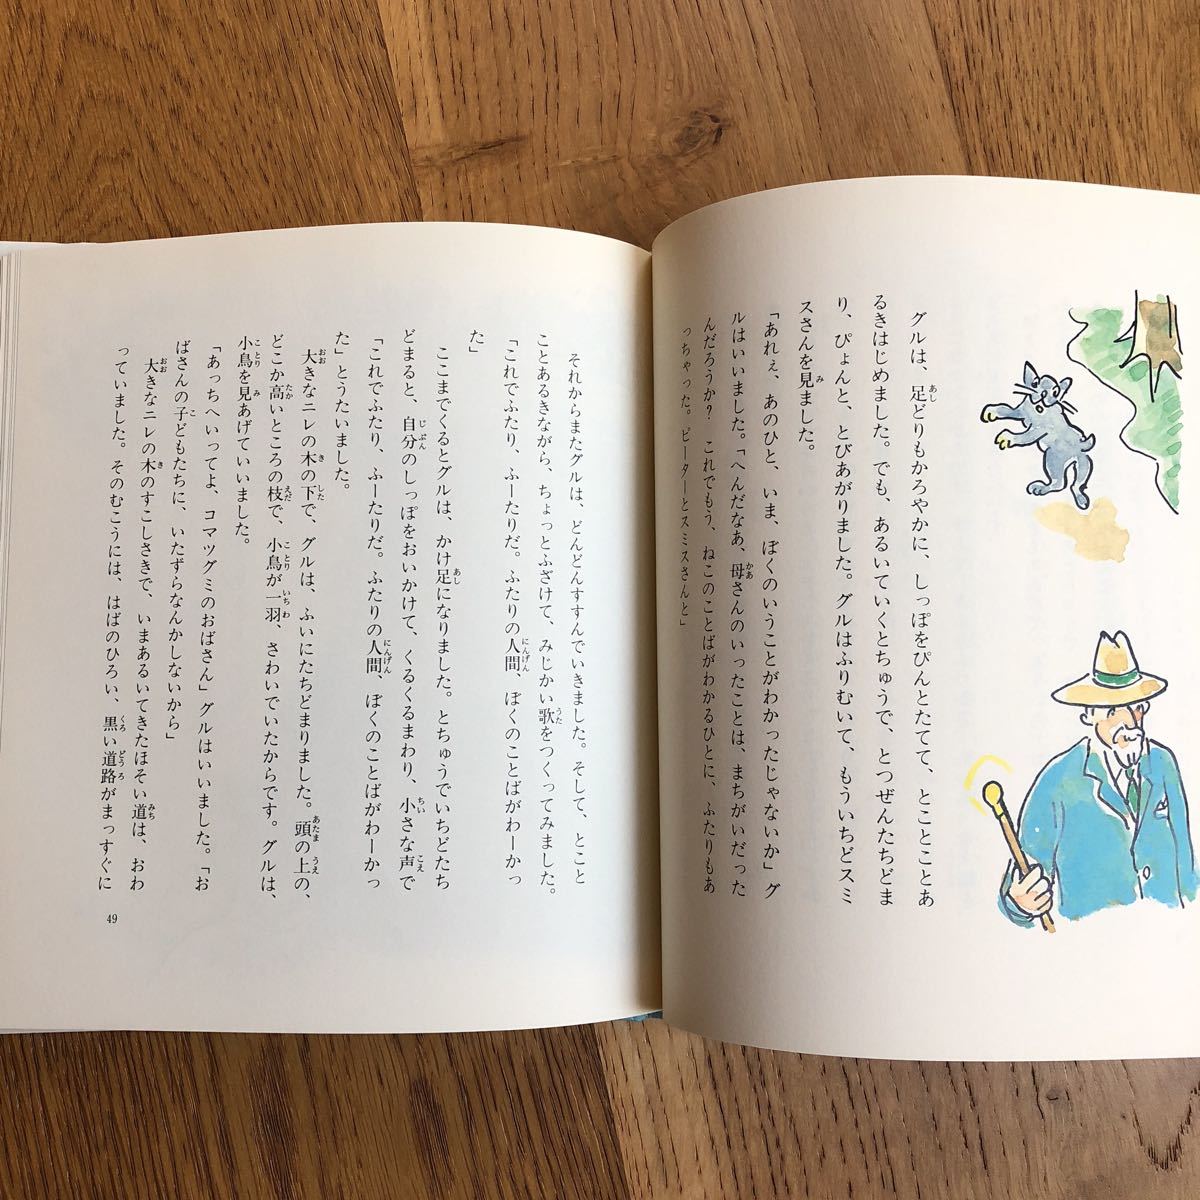 グルは、足どりもかろやかに、しっぽをぴんとたてて、とことことあ
るきはじめました。でも、あるいていくとちゅうで、とつぜんたちどま
り、ぴょんと、とびあがりました。グルはふりむいて、もういちどスミ
スさんを見ました。
「あれぇ、あのひと、いま、ぼくのいうことがわかったじゃないか」グ
ルはいいました。「へんだなあ、母さんのいったことは、まちがいだった
んだろうか？　これでもう、ねこのことばがわかるひとに、ふたりもあ
っちゃった。ピーターとスミスさんと」
それからまたグルは、どんどんすすんでいきました。そして、とこと
ことあるきながら、ちょっとふざけて、みじかい歌をつくってみました。
「これでふたり、ふーたりだ。ふたりの人間、ぼくのことばがわーかっ
た」
ここまでくるとグルは、かけ足になりました。とちゅうでいちどたち
どまると、自分のしっぽをおいかけて、くるくるまわり、小さな声で
「これでふたり、ふーたりだ。ふたりの人間、ぼくのことばがわーかっ
た」とうたいました。
大きなニレの木の下で、グルは、ふいにたちどまりました。頭の上の、
どこか高いところの枝で、小鳥が一羽、さわいでいたからです。グルは、
小鳥を見あげていいました。
「あっちへいってよ、コマツグミのおばさん」グルはいいました。「お
ばさんの子どもたちに、いたずらなんかしないから」
大きなニレの木のすこしさきで、いまあるいてきたほそい道は、おわ
っていました。そのむこうには、はばのひろい、黒い道路がまっすぐに
49